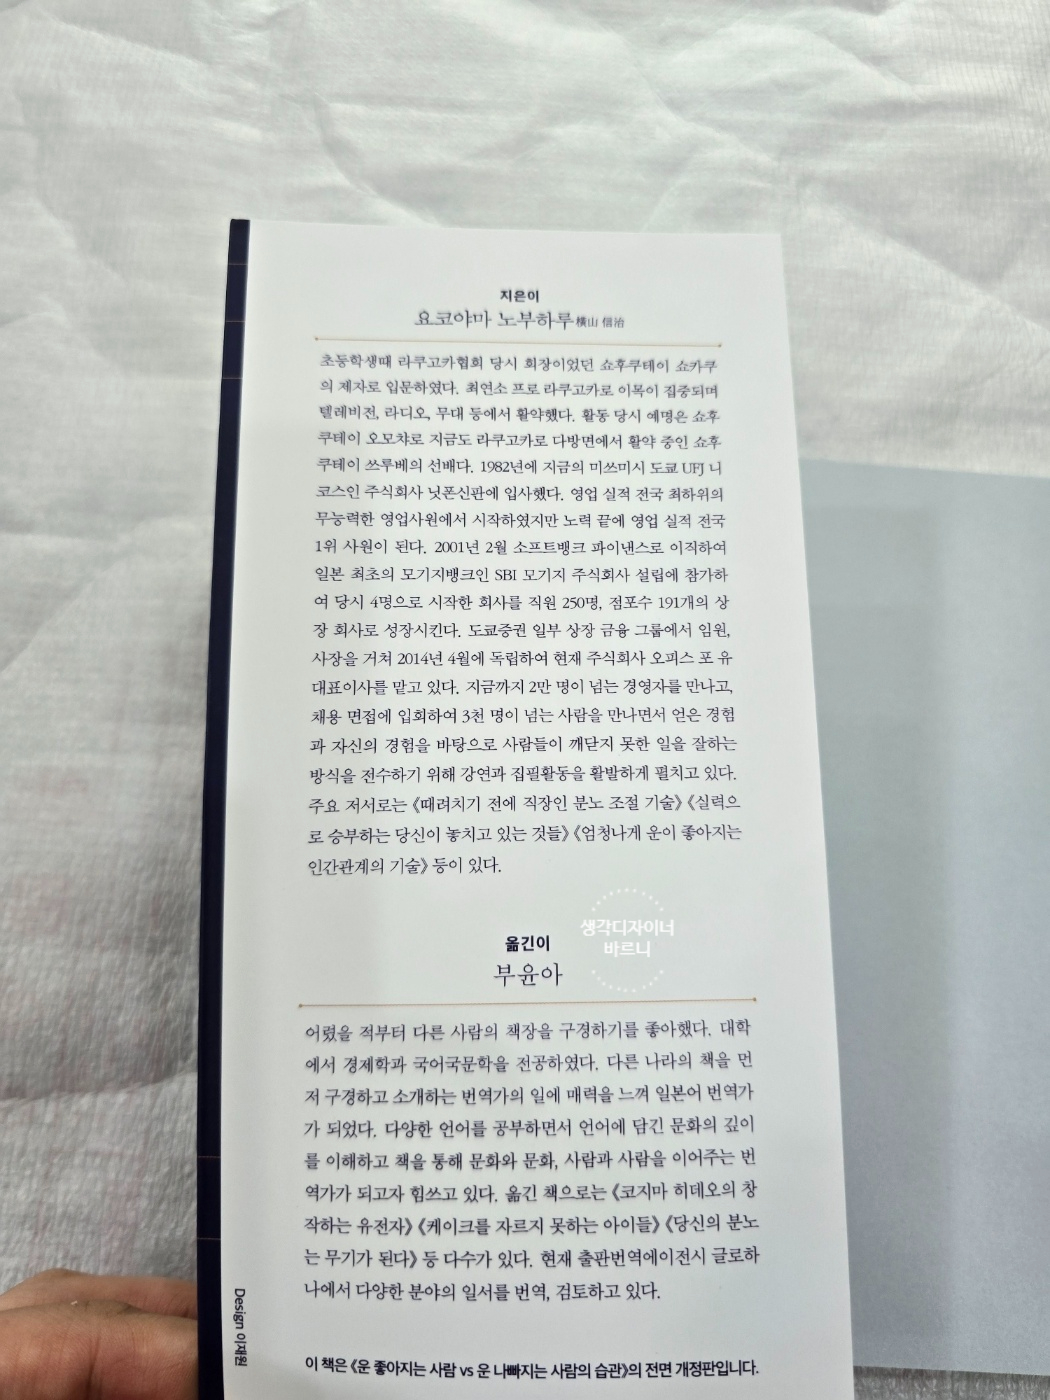 지은이
요코야마 노부하루 橫山 信治
초등학생때 라쿠고카협회 당시 회장이었던 쇼후쿠테이 쇼카쿠
의 제자로 입문하였다. 최연소 프로 라쿠고카로 이목이 집중되며
텔레비전, 라디오, 무대 등에서 활약했다. 활동 당시 예명은 쇼후
쿠테이 오모챠로 지금도 라쿠고카로 다방면에서 활약 중인 쇼후
쿠테이 쓰루베의 선배다. 1982년에 지금의 미쓰미시 도쿄 UFJ 니
코스인 주식회사 닛폰신판에 입사했다. 영업 실적 전국 최하위의
무능력한 영업사원에서 시작하였지만 노력 끝에 영업 실적 전국
1위 사원이 된다. 2001년 2월 소프트뱅크 파이낸스로 이직하여
일본 최초의 모기지뱅크인 SBI 모기지 주식회사 설립에 참가하
여 당시 4명으로 시작한 회사를 직원 250명, 점포수 191개의 상
장 회사로 성장시킨다. 도쿄증권 일부 상장 금융 그룹에서 임원,
사장을 거쳐 2014년 4월에 독립하여 현재 주식회사 오피스 포 유
대표이사를 맡고 있다. 지금까지 2만 명이 넘는 경영자를 만나고,
채용 면접에 입회하여 3천 명이 넘는 사람을 만나면서 얻은 경험
과 자신의 경험을 바탕으로 사람들이 깨닫지 못한 일을 잘하는
방식을 전수하기 위해 강연과 집필활동을 활발하게 펼치고 있다.
주요 저서로는 《때려치기 전에 직장인 분노 조절 기술》《실력으
로 승부하는 당신이 놓치고 있는 것들》《엄청나게 운이 좋아지는
인간관계의 기술》 등이 있다.
생각디자이너
바르니
옮긴이
부윤아
어렸을 적부터 다른 사람의 책장을 구경하기를 좋아했다. 대학
에서 경제학과 국어국문학을 전공하였다. 다른 나라의 책을 먼
저 구경하고 소개하는 번역가의 일에 매력을 느껴 일본어 번역가
가 되었다. 다양한 언어를 공부하면서 언어에 담긴 문화의 깊이
를 이해하고 책을 통해 문화와 문화, 사람과 사람을 이어주는 번
역가가 되고자 힘쓰고 있다. 옮긴 책으로는 《코지마 히데오의 창
작하는 유전자》《케이크를 자르지 못하는 아이들》《당신의 분노
는 무기가 된다》 등 다수가 있다. 현재 출판번역에이전시 글로하
나에서 다양한 분야의 일서를 번역, 검토하고 있다.
Design 이재원
이 책은 《운 좋아지는 사람 vs 운 나빠지는 사람의 습관》의 전면 개정판입니다.